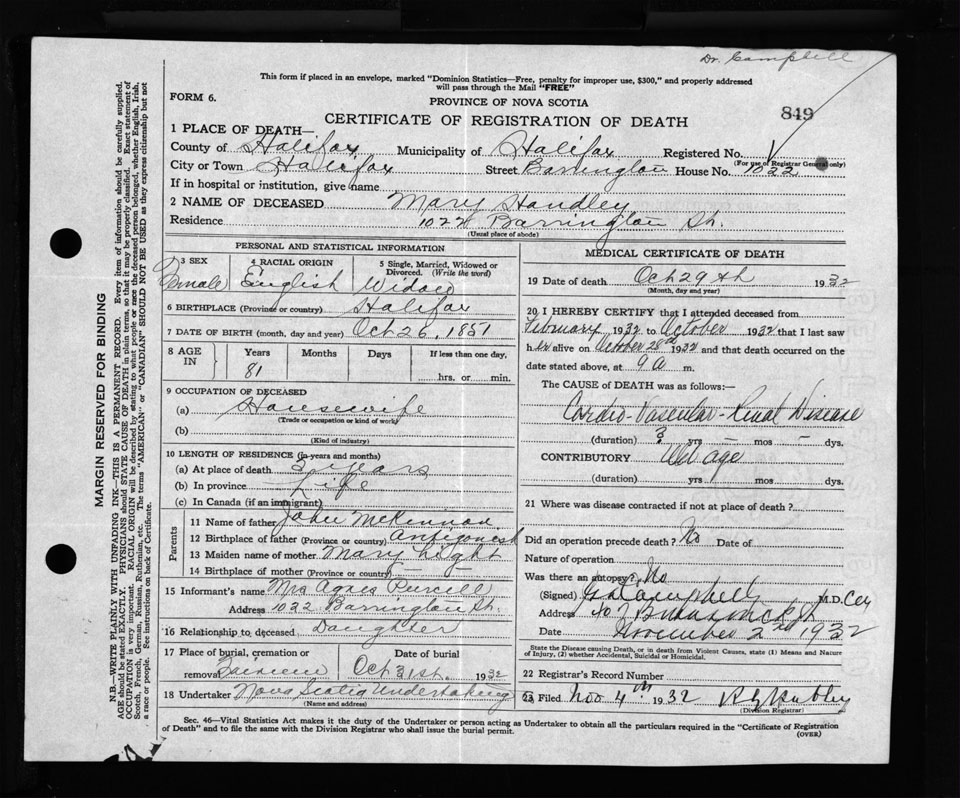 Dr. Campbell
This form if placed in an envelope, marked "Dominion Statistics—Free, penalty for improper use, $300," and properly addressed
will pass through the Mail "FREE"
FORM 6.
PROVINCE OF NOVA SCOTIA
849
CERTIFICATE OF REGISTRATION OF DEATH
1 PLACE OF DEATH—
County of Halifax Municipality of Halifax Registered No.
(For use of Registrar General only)
City or Town Halifax Street Barrington House No. 1022
If in hospital or institution, give name
2 NAME OF DECEASED Mary Handley
Residence 1022 Barrington St.
(Usual place of abode)
PERSONAL AND STATISTICAL INFORMATION
3 SEX 4 RACIAL ORIGIN 5 Single, Married, Widowed or
Divorced. (Write the word)
Female English Widow
6 BIRTHPLACE (Province or country) Halifax
7 DATE OF BIRTH (month, day and year) Oct 26, 1851
8 AGE IN Years Months Days If less than one day,
81 hrs. or min.
9 OCCUPATION OF DECEASED
(a) Housewife
(Trade or occupation or kind of work)
(b)
(Kind of industry)
10 LENGTH OF RESIDENCE (in years and months)
(a) At place of death 3 years
(b) In province Life
(c) In Canada (if an immigrant)
Parents
11 Name of father John McKinnon
12 Birthplace of father (Province or country) Antigonish
13 Maiden name of mother Mary Light
14 Birthplace of mother (Province or country) — —
15 Informant's name Mrs Agnes Purcell
Address 1022 Barrington St.
16 Relationship to deceased Daughter
17 Place of burial, cremation or Date of burial
removal Oct 31st. 1932
18 Undertaker Nova Scotia Undertaking
(Name and address)
MEDICAL CERTIFICATE OF DEATH
19 Date of death Oct 29th 1932
(Month, day and year)
20 I HEREBY CERTIFY that I attended deceased from
February 1932 to October 1932 that I last saw
her alive on October 28th 1932 and that death occurred on the
date stated above, at 9 a m.
The CAUSE OF DEATH was as follows:—
Cardio-Vascular-Renal Disease
(duration) 3 yrs — mos — dys.
CONTRIBUTORY Old age
(duration) yrs mos dys.
21 Where was disease contracted if not at place of death?
Did an operation precede death? No Date of
Nature of operation
Was there an autopsy? No
(Signed) Campbell M.D.
Address 407 Brunswick St
Date November 2nd 1932
State the Disease causing Death, or in death from Violent Causes, state (1) Means and Nature
of Injury, (2) whether Accidental, Suicidal or Homicidal.
22 Registrar's Record Number
23 Filed Nov 4th 1932
(Division Registrar)
Sec. 46—Vital Statistics Act makes it the duty of the Undertaker or person acting as Undertaker to obtain all the particulars required in the "Certificate of Registration
of Death" and to file the same with the Division Registrar who shall issue the burial permit.
(OVER)
MARGIN RESERVED FOR BINDING
N.B.—WRITE PLAINLY WITH UNFADING INK—THIS IS A PERMANENT RECORD. Every item of information should be carefully supplied.
AGE should be stated EXACTLY. PHYSICIANS should STATE CAUSE OF DEATH in plain terms, so that it may be properly classified. Exact statement of
OCCUPATION is very important. RACIAL ORIGIN will be described by stating to what people or race the deceased person belonged, whether English, Irish,
Scotch, French, German, Russian, Ruthenian, etc. The terms "AMERICAN" or "CANADIAN" SHOULD NOT BE USED as they express citizenship but not
a race or people. See instructions on back of Certificate.